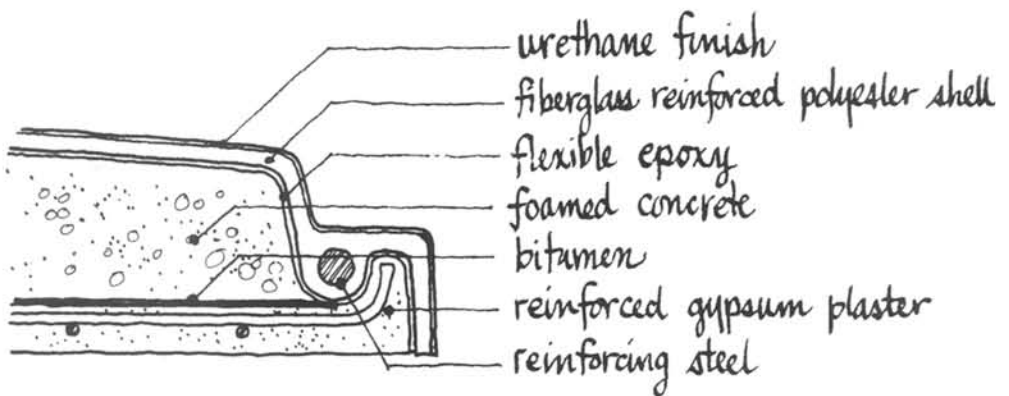 urethane finish
fiberglass reinforced polyester shell
flexible epoxy
foamed concrete
bitumen
reinforced gypsum plaster
reinforcing steel